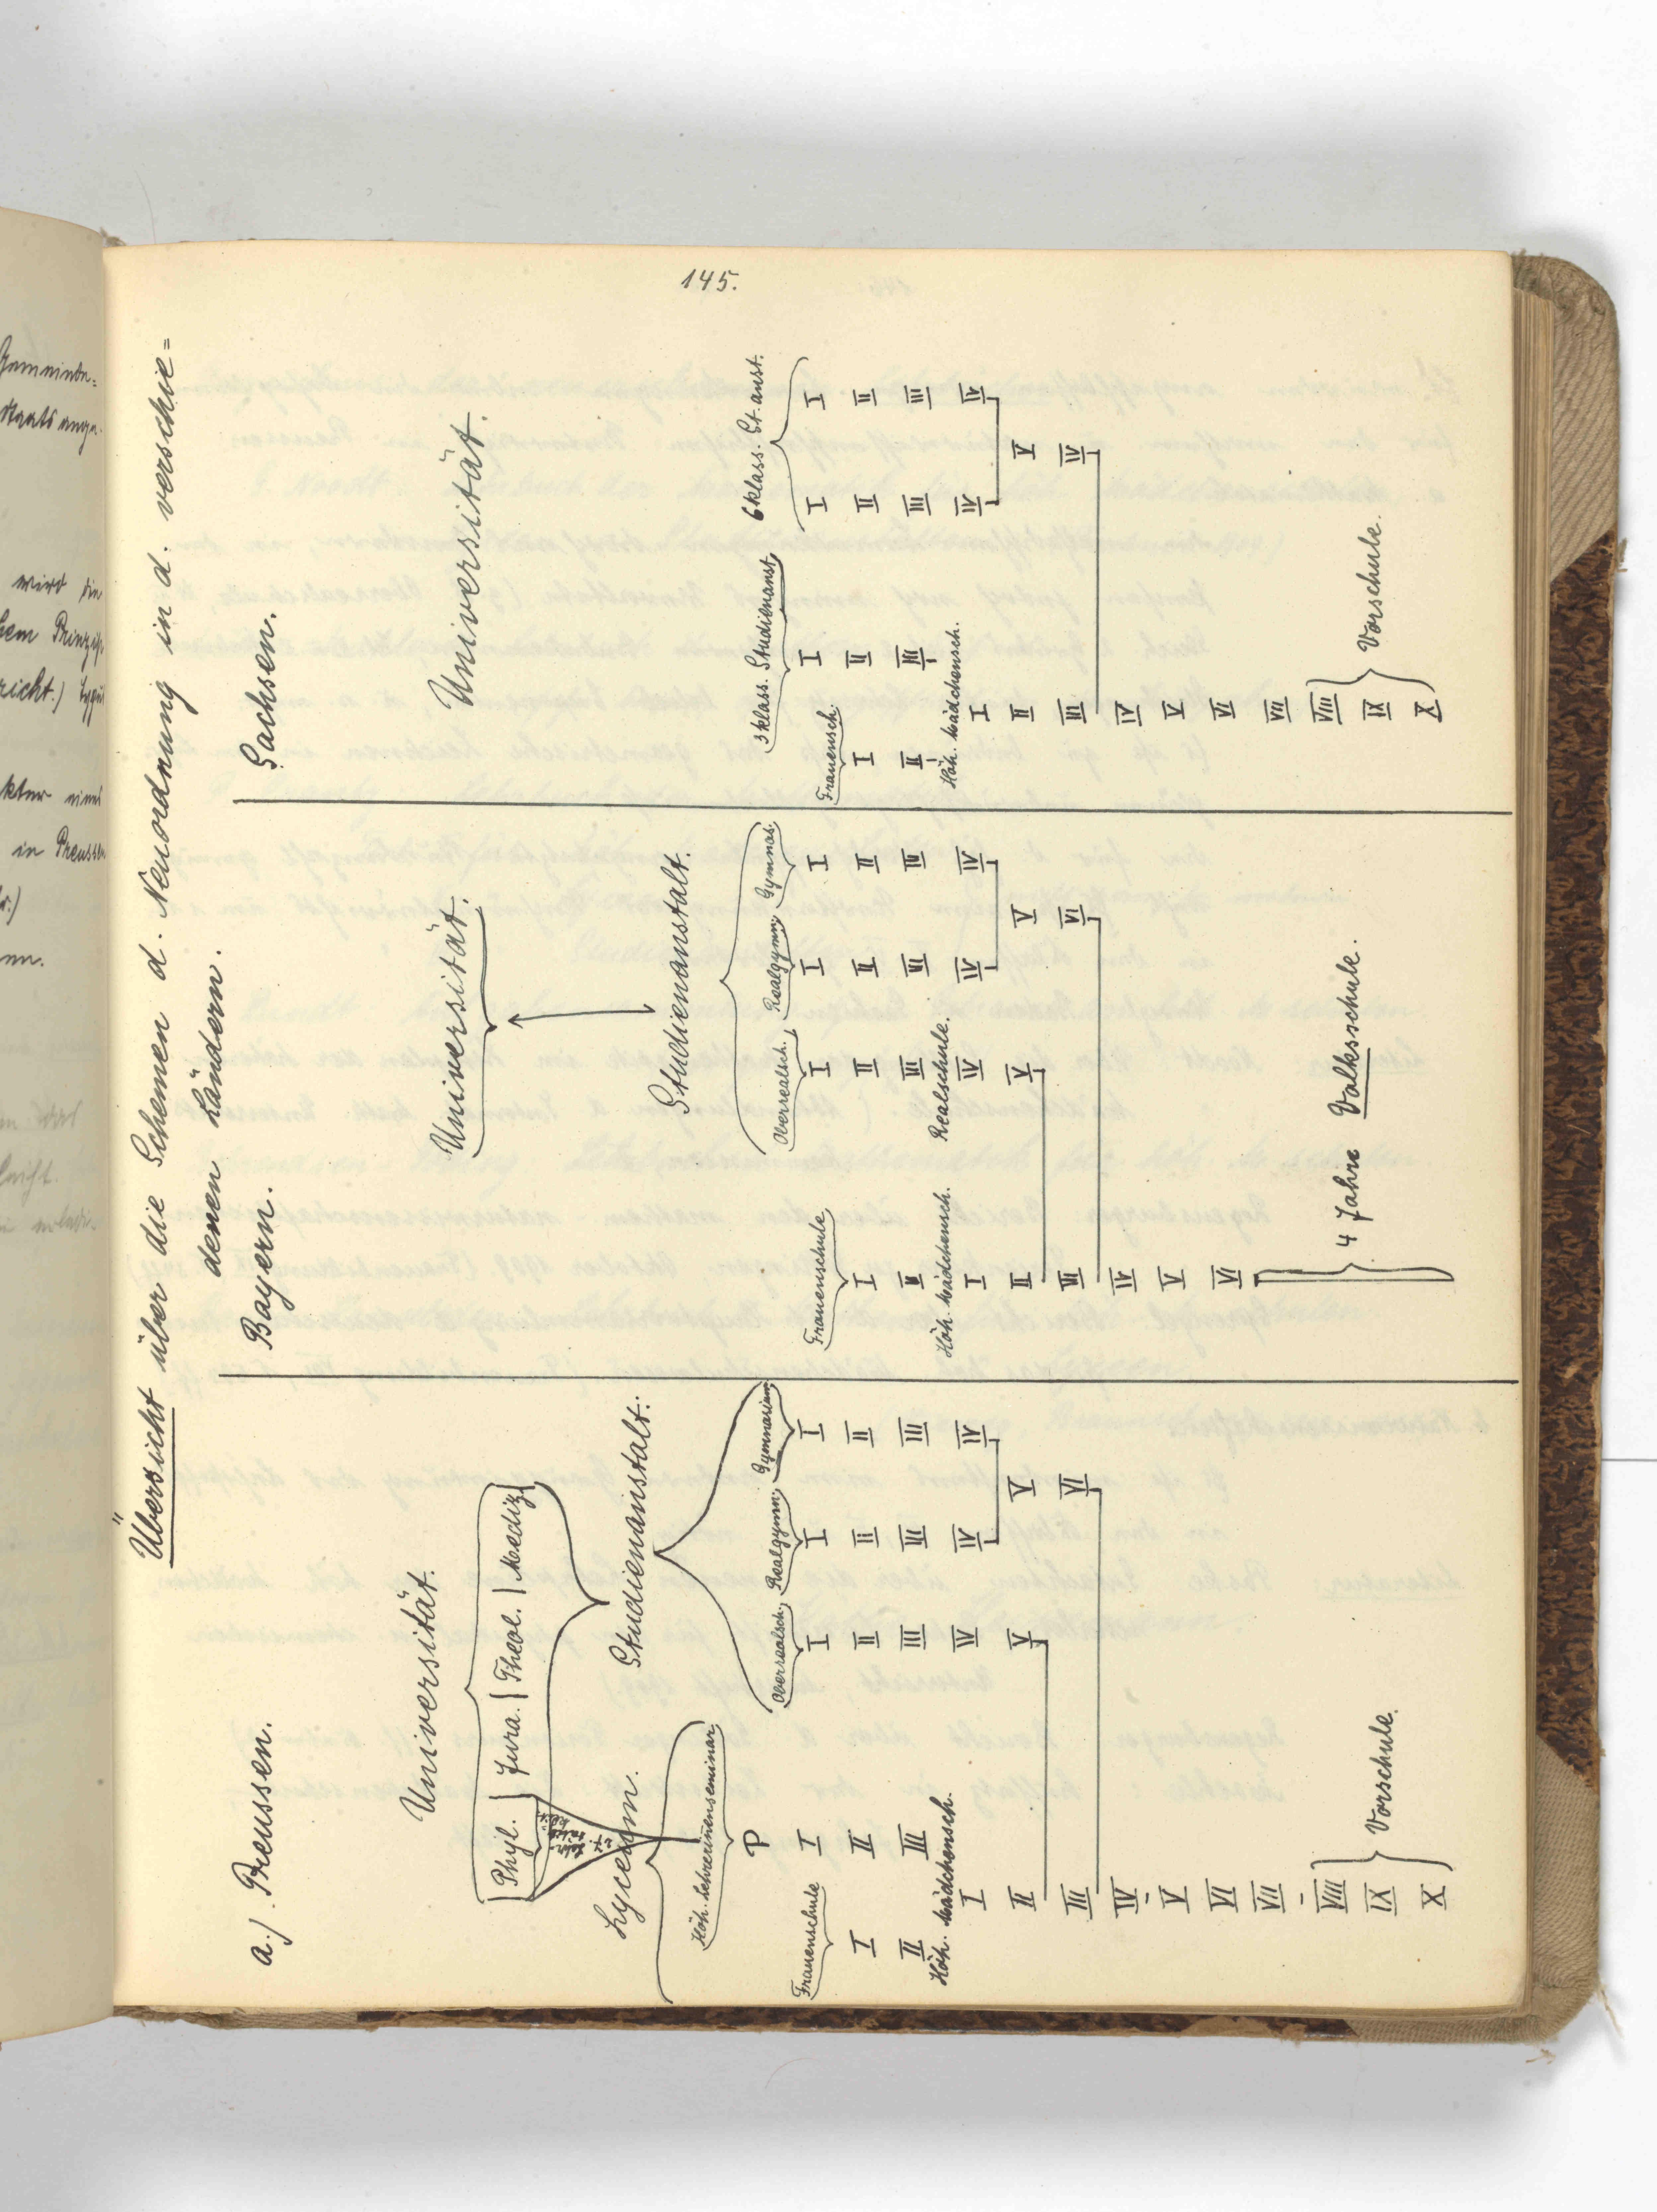 145.
Übersicht über die Schemen d. Neuordnung in d. verschie=
denen Ländern.
a.) Preussen.
Universität.
Phyl. | Jura. | Theol. | Mediz.
Lyceum.
Studienanstalt.
Höh. Lehrerinenseminar
Oberrealsch. Realgymn. Gymnasium
Frauenschule
P
I I I I
I II II II II
II III III III III
Höh. Mädchensch.
I IV IV IV
II V V
III VI
IV
V
VI
VII
VIII
IX
X
Vorschule.
Bayern.
Universität.
Studienanstalt.
Oberrealsch. Realgymn. Gymnas.
Frauenschule
I I I
I II II II
II III III III
Höh. Mädchensch.
Realschule.
I IV IV IV
II V V
III VI
IV
V
VI
4 Jahre Volksschule.
Sachsen.
Universität.
3 klass. Studienanst.
6 klass. St. anst.
Frauensch.
I I I
I II II II
II III III III
Höh. Mädchensch.
I IV IV
II V
III IV
IV
V
VI
VII
VIII
IX
X
Vorschule.
Gemeinde=
Staats ange.
wird die
Prinzip.
richt.)
in Preussen